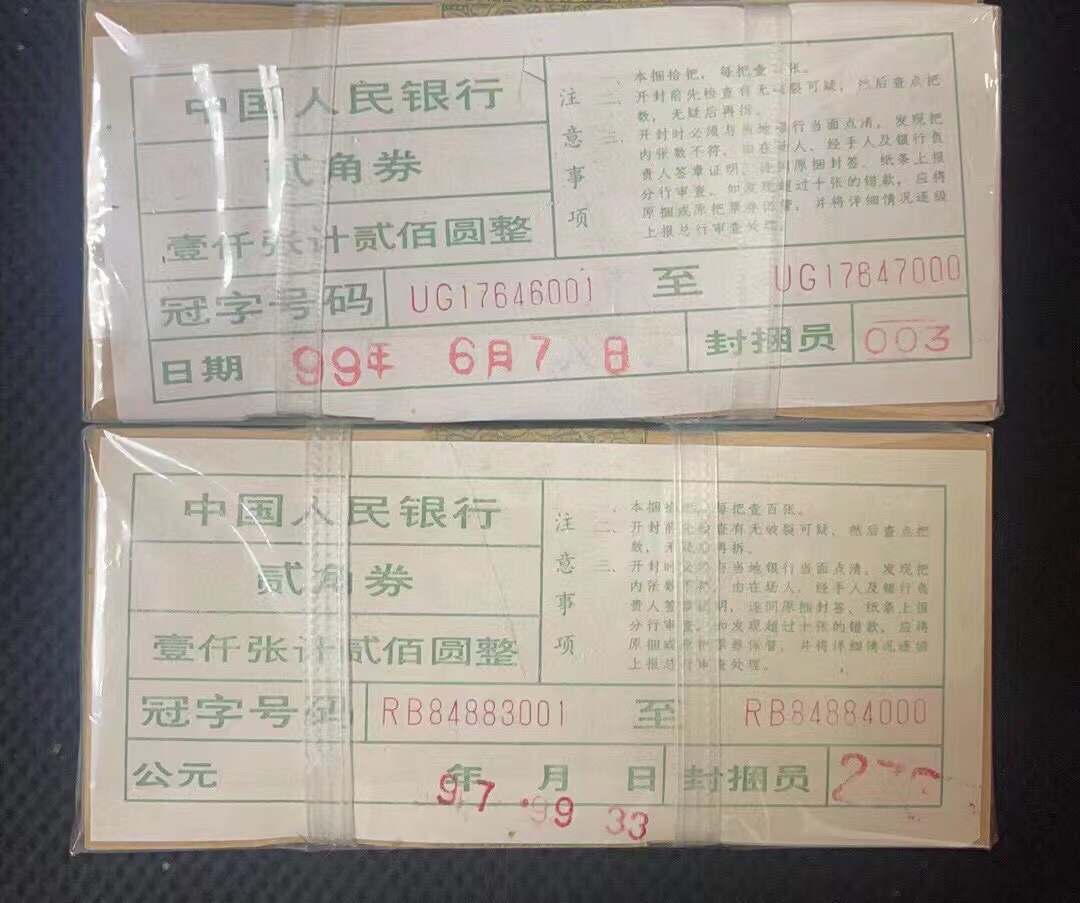 中国人民银行
贰角券
壹仟张计贰佰圆整
注意事项
一、本捆拾把，每把壹百张。
二、开封前先检查有无破裂可疑，然后查点把
数，无疑后再拆。
三、开封时必须与当地银行当面点清，发现把
内张数不符，由在场人、经手人及银行负
责人签章证明，连同原捆封签、纸条上报
分行审查。如发现超过十张的错款，应将
原捆或原把票券保管，并将详细情况逐级
上报总行审查处理。
冠字号码 UG17646001 至 UG17647000
日期 99年 6月7日 封捆员 003
中国人民银行
贰角券
壹仟张计贰佰圆整
注意事项
一、本捆拾把，每把壹百张。
二、开封前先检查有无破裂可疑，然后查点把
数，无疑后再拆。
三、开封时必须与当地银行当面点清，发现把
内张数不符，由在场人、经手人及银行负
责人签章证明，连同原捆封签、纸条上报
分行审查。如发现超过十张的错款，应将
原捆或原把票券保管，并将详细情况逐级
上报总行审查处理。
冠字号码 RB84883001 至 RB84884000
公元 年 月 日 封捆员
97 99 33